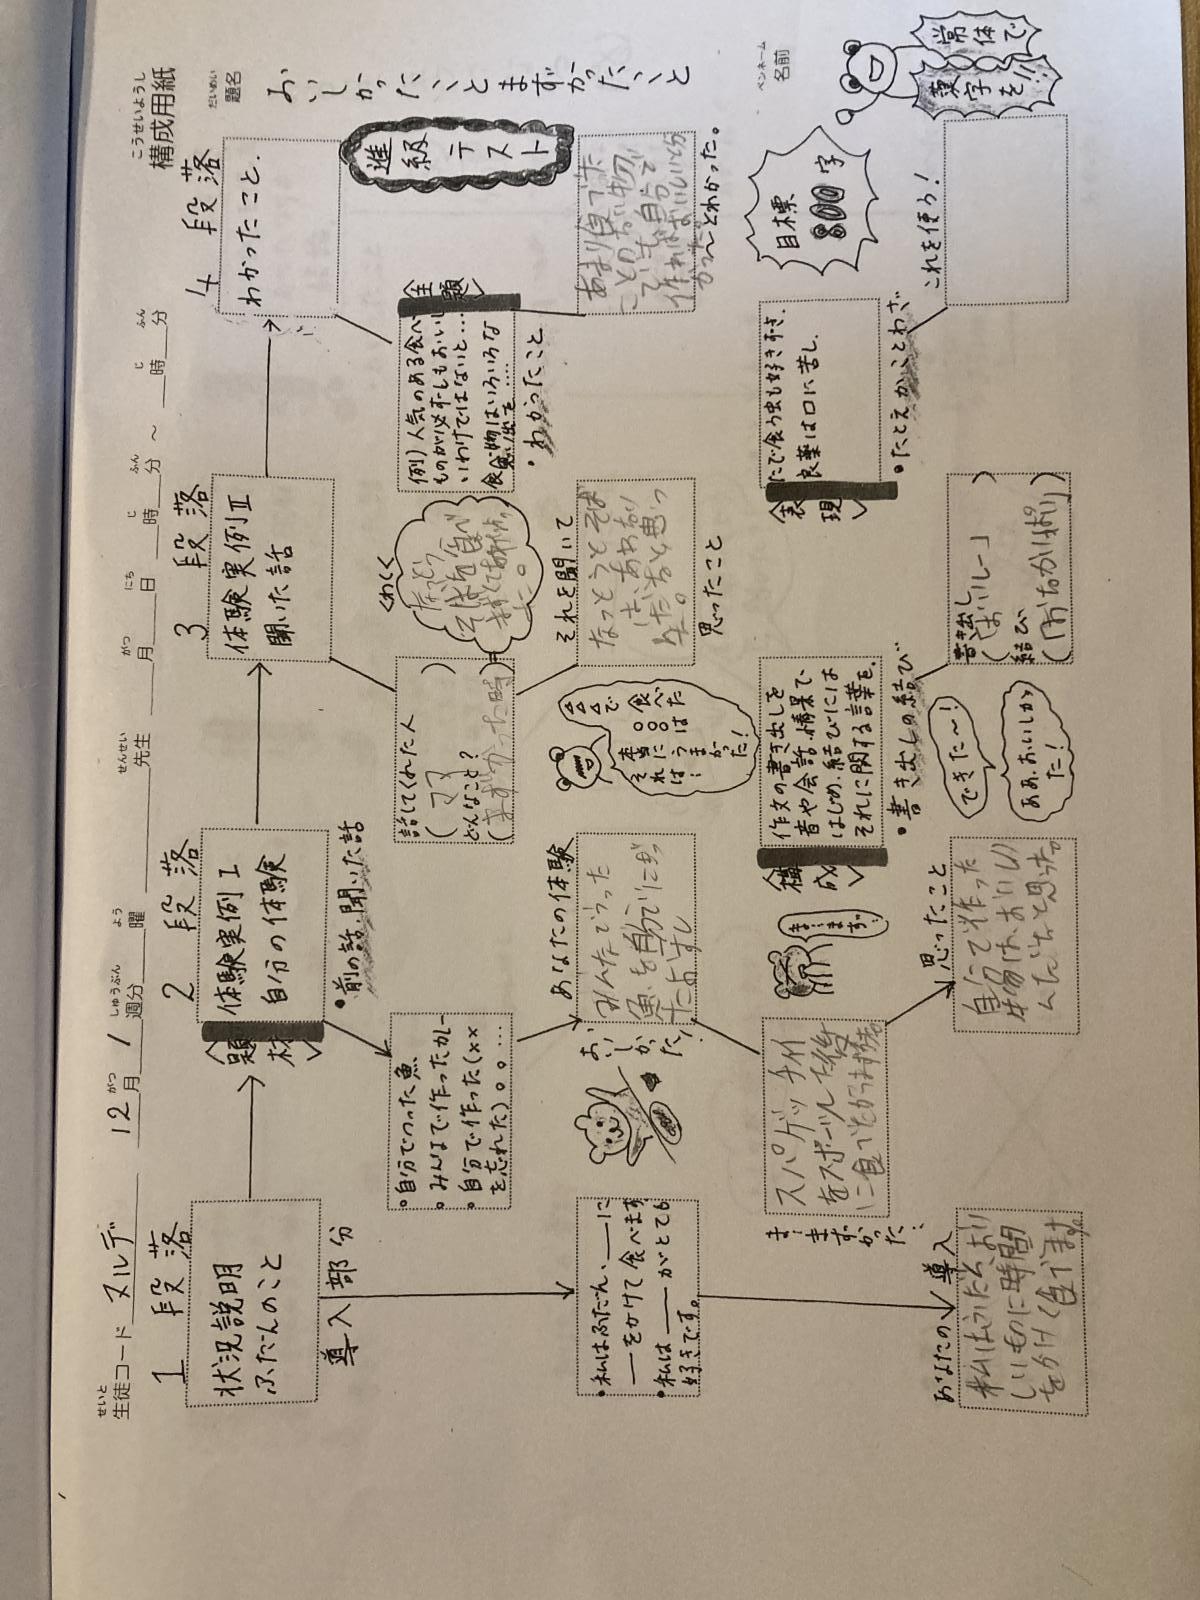 構成用紙
こうせいようし
題名
だいめい
おいしかったことまずかったこと
名前
ペンネーム
生徒コード ヌルデ
せいと
12月1週分 曜 先生 月 日 時 分 ~ 時 分
がつ しゅうぶん よう せんせい がつ にち じ ふん じ ふん
1段落
状況説明
ふだんのこと
導入部分
・私はふだん、___に
___をかけて食べます。
・私は___がとても
好きです。
あなたの導入
私はふだん、おい
しいものに時間
をかけて食べます。
2段落
<題材>
体験実例Ⅰ
自分の体験
・前の話、聞いた話
・自分でつった魚
・みんなで作ったカレー
・自分で作った(××
を忘れた)。。…
あなたの体験
みんなでつった
魚を自分でにぎっ
たおすし
おいしかった!
スパゲッティ
をスポーツした後
に食べたからまずかった。
ま…まずかった…
ま…まず…
思ったこと
自分で作った
物は、おいし
んだなと思った。
3段落
体験実例Ⅱ
聞いた話
話してくれた人
(ママ)
どんなこと?
(まずかった時)
くわしく
なっとう
そばを食べ
まずくて
それを聞いて
なっとうとそば
は、あわない
んだなと思っ
た。
思ったこと
ムムムで
食べた
○○○は
本当に
うまかった!
それは…
<構成>
作文の書き出しを
音や会話、情景で、
はじめ、結びには
それに関する言葉を。
・書き出しの結び
できた~!
ああ、おいしかった!
書き出し
結び
4段落
わかったこと.
進級テスト
<主題>
例)人気のある食べ
ものが必ずしもおいし
いわけではないと…
食べ物はいろいろな
思い出を……
・わかったこと
あまり食べた
ことのない物
でも、自分で
作ればおいしいと分
かった。
~とわかった。
<表現>
たで食う虫も好きずき.
良薬は口に苦し.
・たとえかことわざ
これを使う!
目標
800字
常体で
漢字を!!